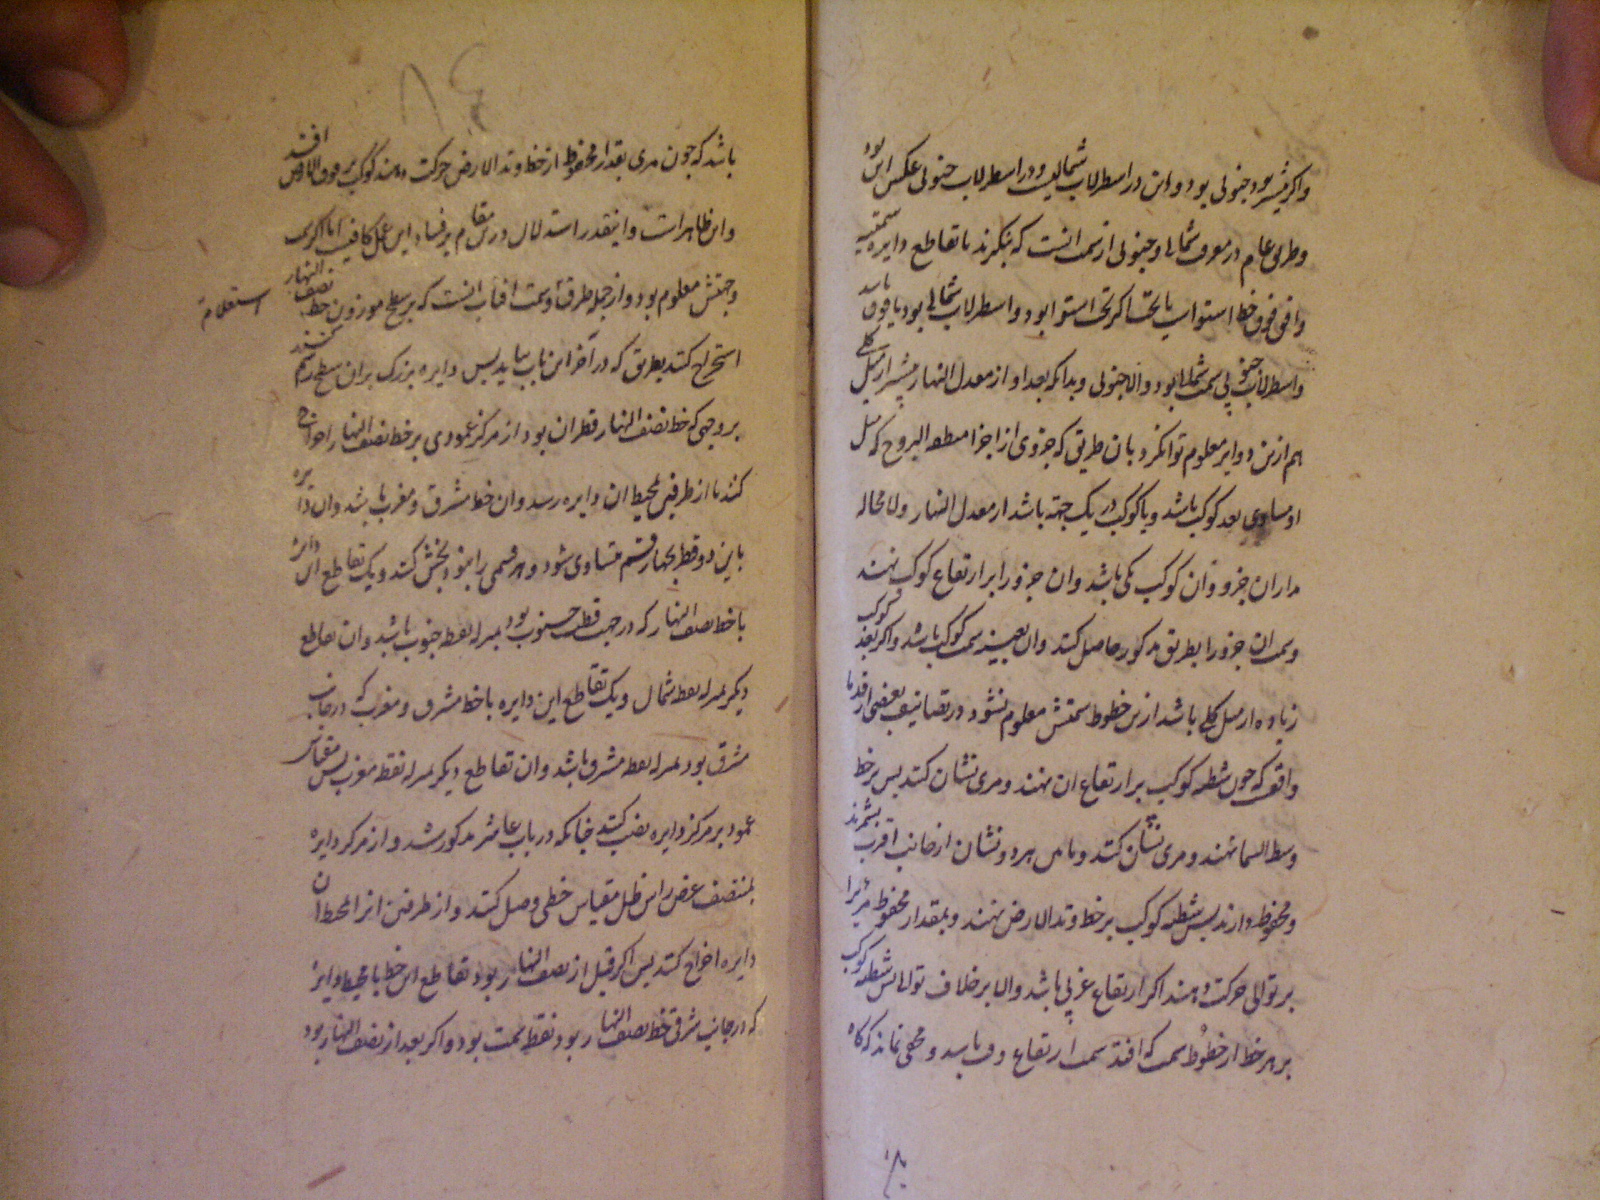 واکر بیشتر بود جنوبی بود و این در اسطرلاب شمالیست و در اسطرلاب جنوبی عکس این بود
و طریق عام در معرفت شمالی و جنوبی از سمت انست که بنکرند تا تقاطع دایره سمتیه
و افق فوق خط استواست یا تحت اکر تحت استوا بود و اسطرلاب شمالی بود یا فوق باشد
و اسطرلاب جنوبی سمت شمالی بود والا جنوبی و بدانکه بعد او از معدل النهار بیشتر از میل کلی
هم ازین دوایر معلوم توانکرد بان طریق که جزوی از اجزا منطقه البروج که میل
او مساوی بعد کوکب باشد و با کوکب در یک جهة باشد از معدل النهار ولا محاله
مدار ان جزو و ان کوکب یکی باشد و ان جزو را بر ارتفاع کوکب نهند
و سمت ان جزو را بطریق مذکور حاصل کنند و ان بعینه سمت کوکب باشد و اکر بعد کوکب
زیاده از میل کلی باشد ازین خطوط سمتش معلوم نشود و در تصانیف بعضی از قدما
واقع که چون شظیه کوکب بر ارتفاع ان نهند و مری نشان کنند پس بر خط
وسط السما نهند و مری نشان کنند و ما بین هر دو نشان از جانب اقرب بشمرند
و محفوظ دارند پس شظیه کوکب بر خط وتد الارض نهند و بمقدار محفوظ مری را
بر توالی حرکت دهند اکر ارتفاع غربی باشد والا بر خلاف توالی پس شظیه کوکب
بر هر خط از خطوط سمت که افتد سمت ارتفاع وقت باشد و مخفی نماند که کاه
باشد که چون مری بقدر محفوظ از خط وتد الارض حرکت دهند کوکب فوق الارض افتد
و این ظاهر است و اینقدر استدلال درین مقام بر فساد این عمل کافیست اما اکر
و جهتش معلوم بود و از جمله طرق سمت افتاب انست که بر سطح موزون خط نصف النهار
استعلام
استخراج کنند بطریقی که در آخر این باب بیاید پس دایره بزرک بران سطح رسم کنند
بر وجهی که خط نصف النهار قطر ان بود از مرکز عمودی بر خط نصف النهار اخراج
کنند تا از طرفین بمحیط ان دایره رسد و ان خط مشرق و مغرب باشد و ان دایره
باین دو قطر بچهار قسم متساوی شود و هر قسمی را بنود بخش کنند و یک تقاطع این دایره
با خط نصف النهار که در جهت قطب جنوب بود بمنزله نقطه جنوب باشد و ان تقاطع
دیکر بمنزله نقطه شمال و یک تقاطع این دایره با خط مشرق و مغرب که در جانب
مشرق بود بمنزله نقطه مشرق باشد و ان تقاطع دیکر بمنزله نقطه مغرب پس مقیاس
عمود بر مرکز دایره نصب کنند چنانکه در باب عاشر مذکور شد و از مرکز دایره
بمنتصف عرض راس ظل مقیاس خطی وصل کنند و از طرفین انرا بمحیط ان
دایره اخراج کنند پس اکر قبل از نصف النهار بود تقاطع این خط با محیط دایره
که در جانب شرقی خط نصف النهار بود نقطه سمت بود و اکر بعد از نصف النهار بود